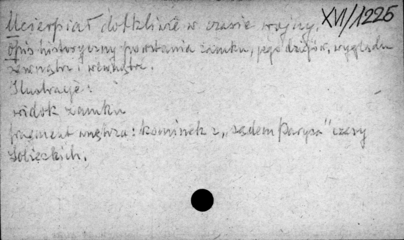 XVI/1225
Ucierpiał dotkliwie w czasie wojny.
Opis historyczny powstania zamku, jego dziejów, wyglądu
zewnątrz i wewnątrz.
Ilustracje:
widok zamku
fragment wnętrza: kominek z „sądem Parysa” czasy
Sobieskich.